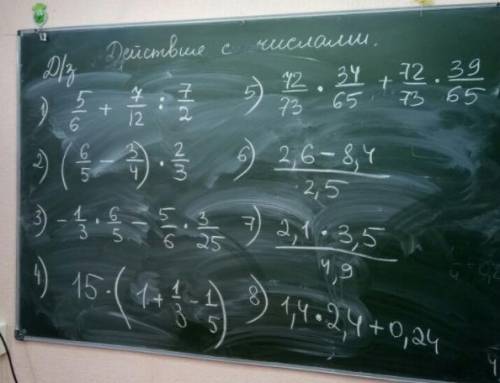 Действие с числами.
Д/з
1) 5/6 + 7/12 : 7/2
2) (6/5 - 3/4) · 2/3
3) - 1/3 · 6/5 - 5/6 · 3/25
4) 15 · (1 + 1/3 - 1/5)
5) 72/73 · 34/65 + 72/73 · 39/65
6) 2,6 - 8,4 / 2,5
7) 2,1 · 3,5 / 4,9
8) 1,4 · 2,4 + 0,24